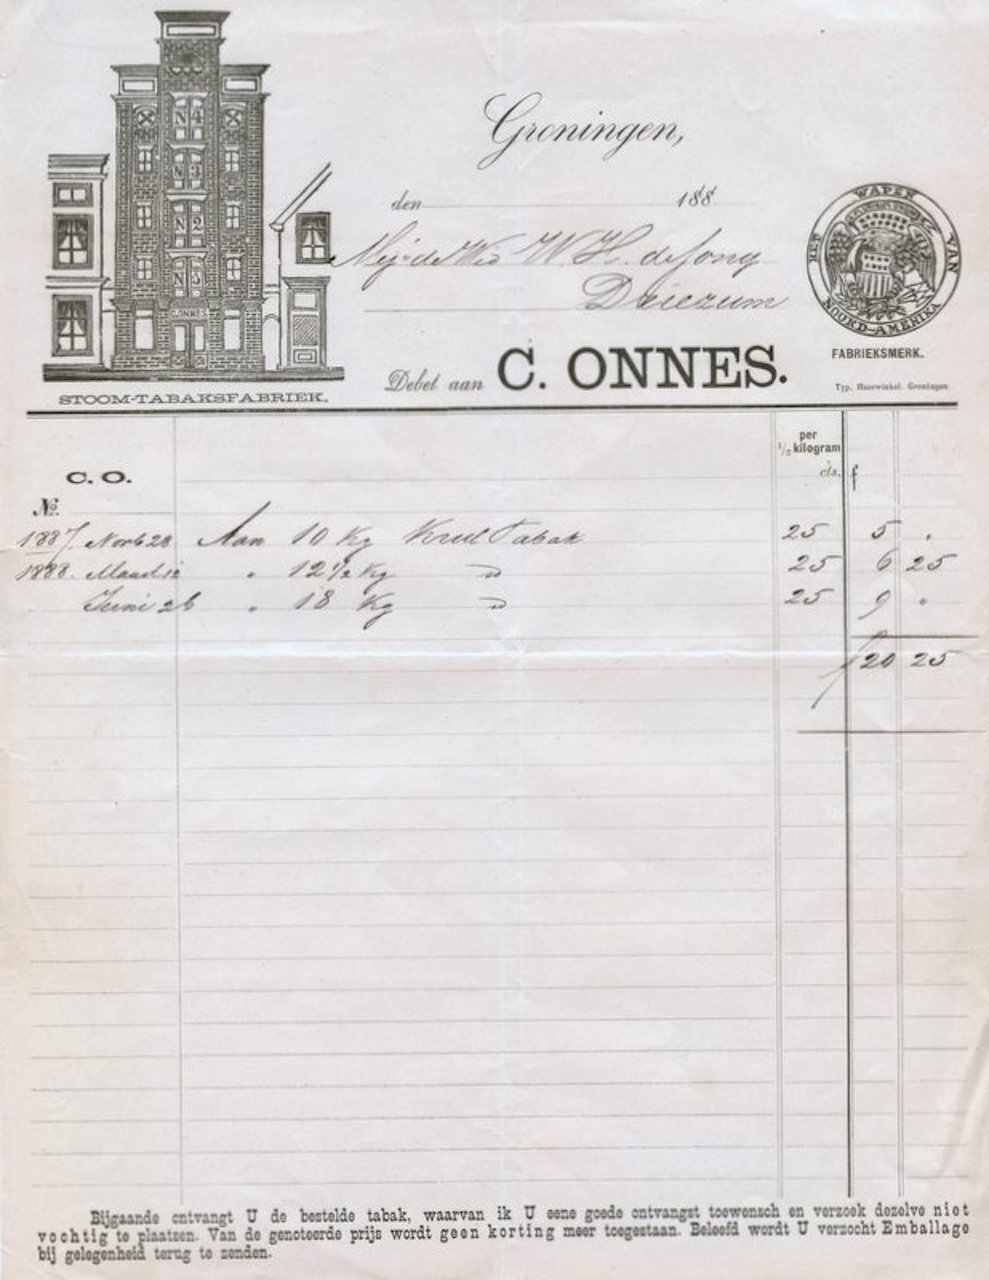 Groningen,
den 188
Mej. de Wed W. H. de Jong
Driezum
Debet aan C. ONNES.
N 4
N 3
N 2
C. ONNES
STOOM-TABAKSFABRIEK.
HET WAPEN VAN NOORD-AMERIKA
FABRIEKSMERK.
Typ. Haerwinkel. Groningen
per
½ kilogram
cts. f
C. O.
No.
1887. Novb 28 Aan 10 Kg Krul Tabak 25 5 "
1888. Maart 12 " 12 ½ Kg 25 6 25
Juni 26 " 18 Kg 25 9 "
f 20 25
Bijgaande ontvangt U de bestelde tabak, waarvan ik U eene goede ontvangst toewensch en verzoek dezelve niet
vochtig te plaatsen. Van de genoteerde prijs wordt geen korting meer toegestaan. Beleefd wordt U verzocht Emballage
bij gelegenheid terug te zenden.